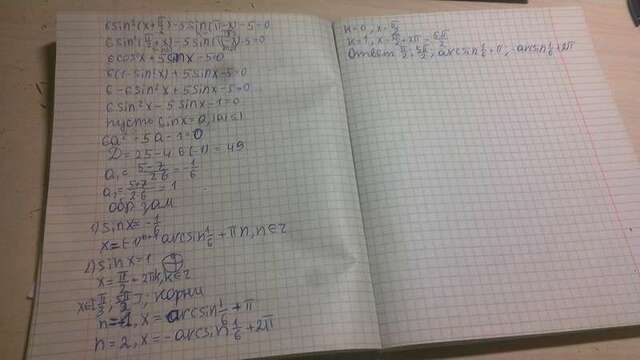 6sin²(x+π/2)-5sin(π-x)-5=0
6sin²(π/2+x)-5sin(π-x)-5=0
6cos²x+5sinx-5=0
6(1-sin²x)+5sinx-5=0
6-6sin²x+5sinx-5=0
6sin²x-5sinx-1=0
пусть sinx=a, |a|≤1
6a²-5a-1=0
D=25-4·6·(-1)=49
a₁=(5-7)/(2·6)=-1/6
a₂=(5+7)/(2·6)=1
Обр зам
1) sinx=-1/6
x=(-1)ⁿ⁺¹arcsin1/6+πn, n∈z
2) sinx=1
x=π/2+2πk, k∈z
x∈[π/3; 5π/2]; корни
n=1, x=arcsin1/6+π
n=2, x=-arcsin1/6+2π
k=0, x=π/2
k=1, x=π/2+2π=5π/2
Ответ π/2, 5π/2, arcsin1/6+π, -arcsin1/6+2π